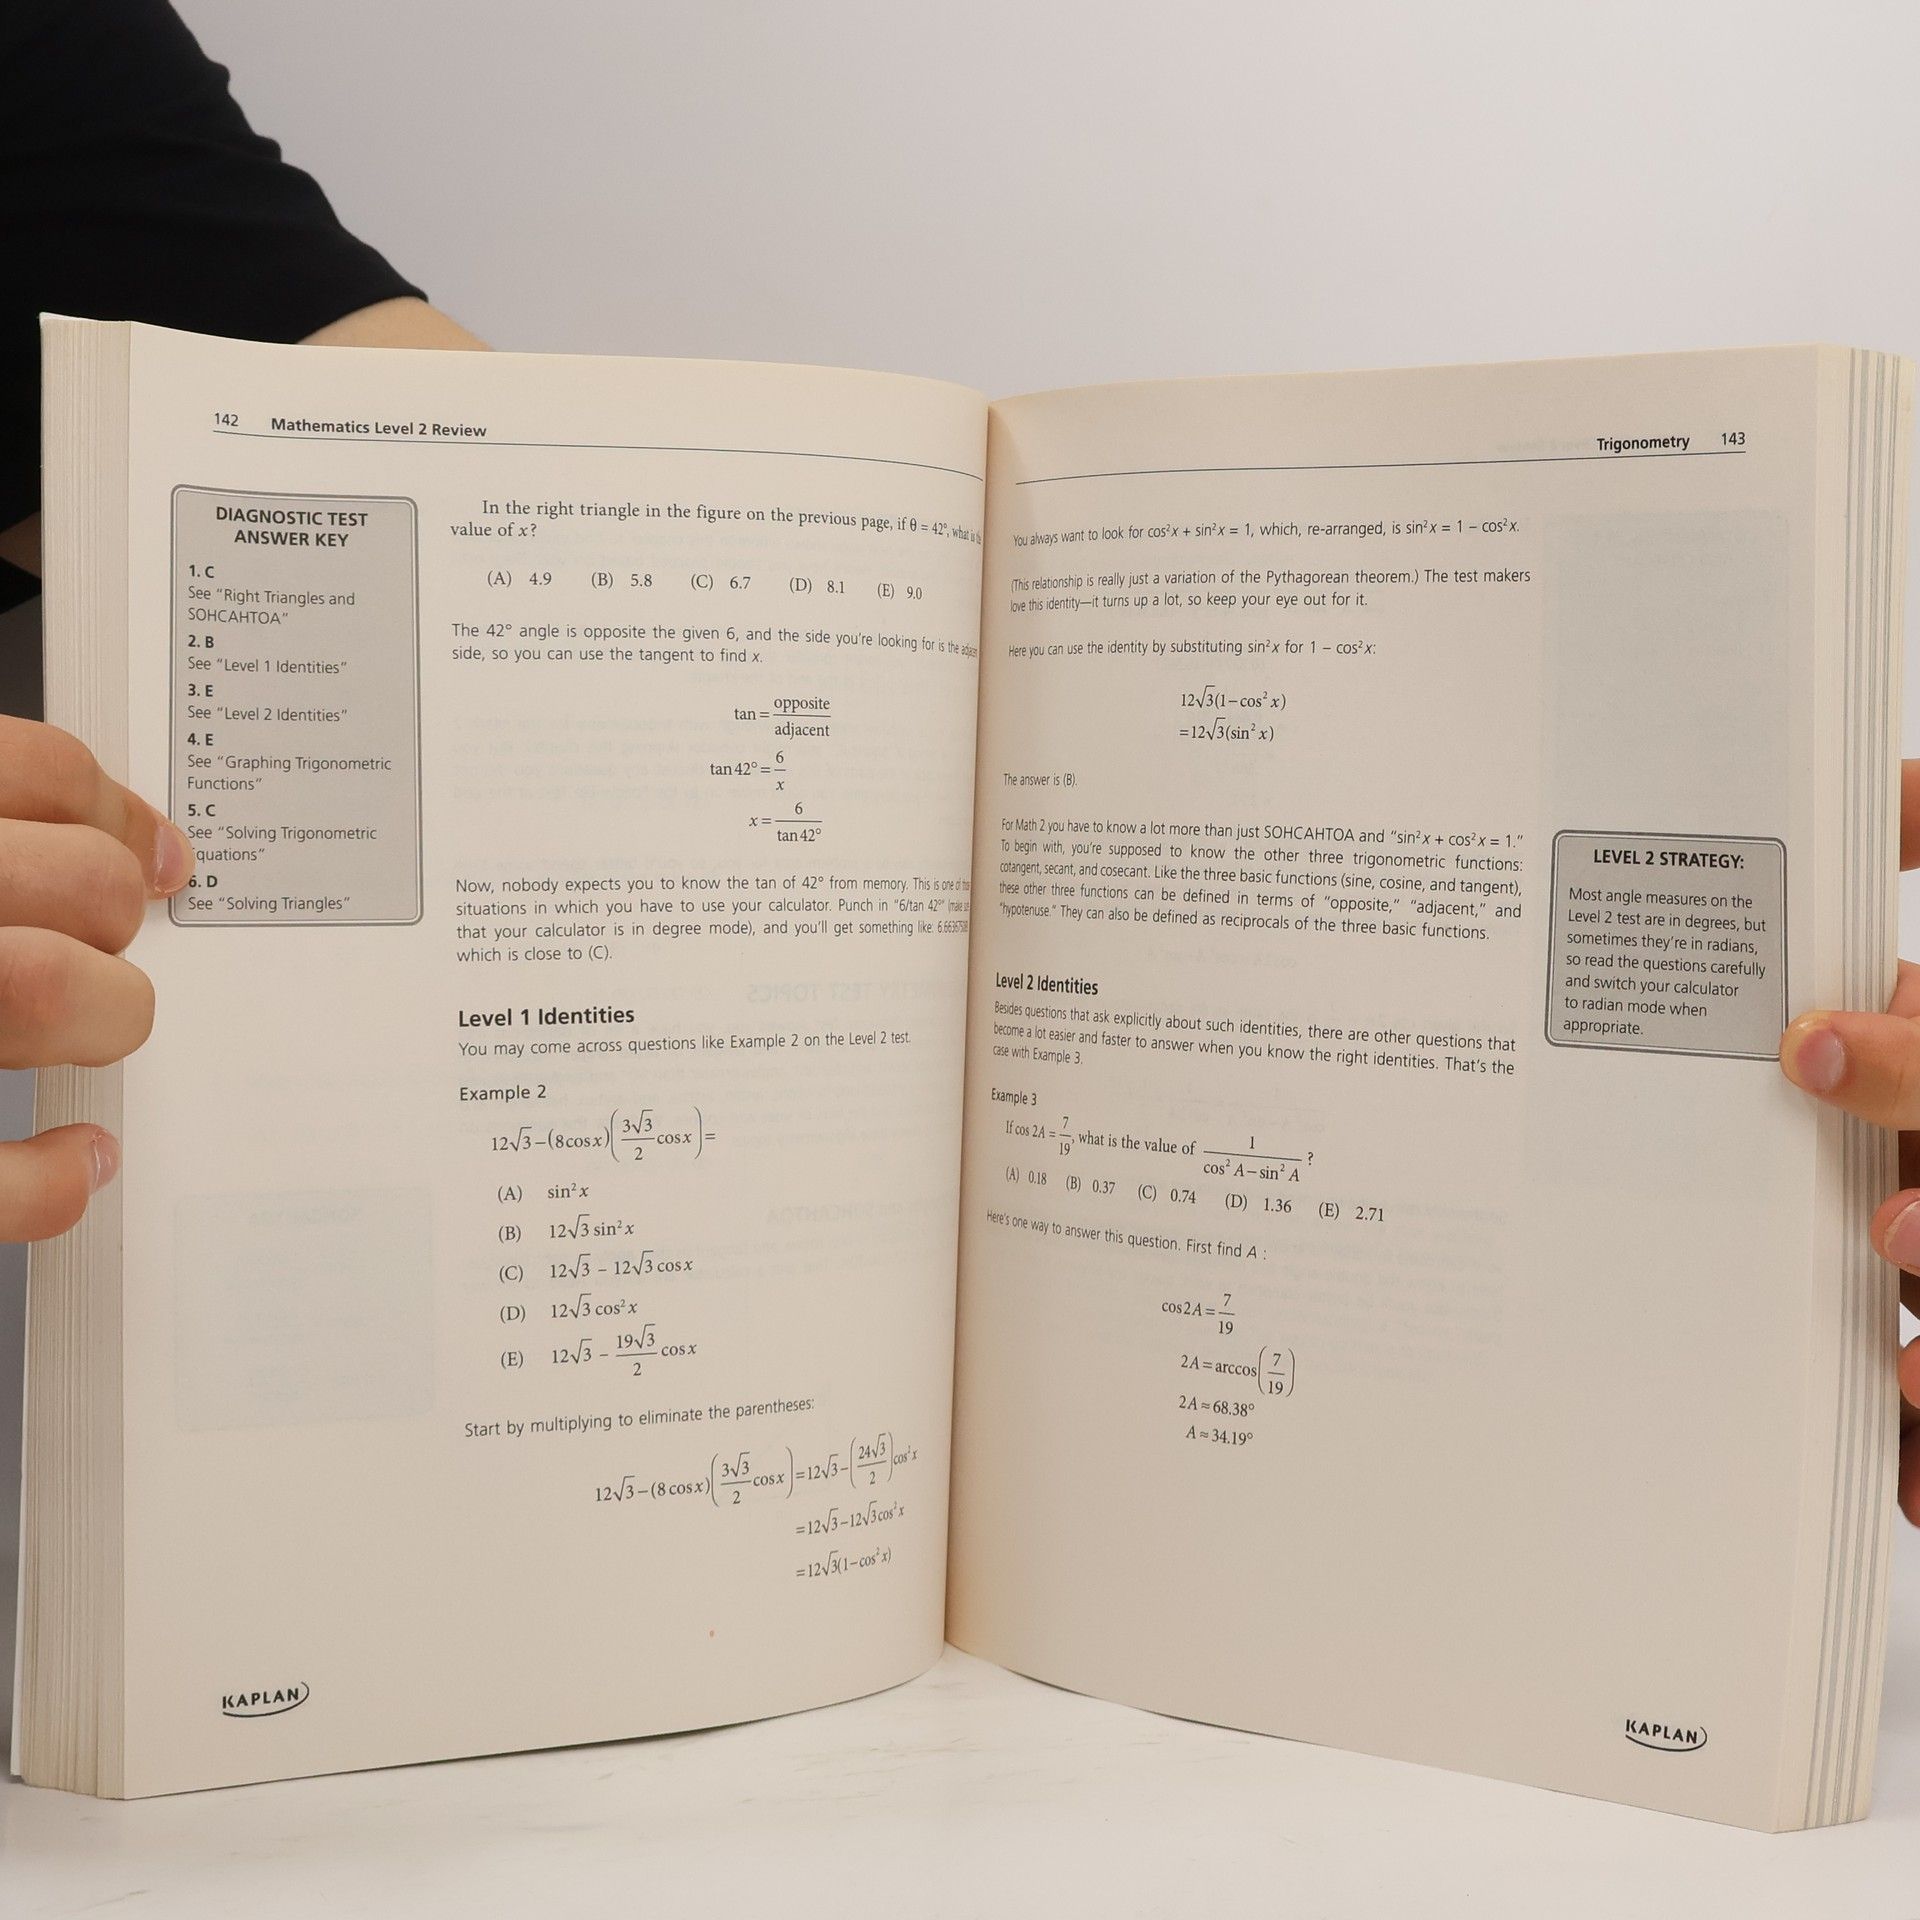 142 Mathematics Level 2 Review
DIAGNOSTIC TEST
ANSWER KEY
1. C
See “Right Triangles and
SOHCAHTOA”
2. B
See “Level 1 Identities”
3. E
See “Level 2 Identities”
4. E
See “Graphing Trigonometric
Functions”
5. C
See “Solving Trigonometric
quations”
6. D
See “Solving Triangles”
In the right triangle in the figure on the previous page, if θ = 42°, what is the
value of x?
(A) 4.9 (B) 5.8 (C) 6.7 (D) 8.1 (E) 9.0
The 42° angle is opposite the given 6, and the side you're looking for is the
side, so you can use the tangent to find x.
tan = opposite/adjacent
tan 42° = 6/x
x = 6/tan 42°
Now, nobody expects you to know the tan of 42° from memory. This is one of
situations in which you have to use your calculator. Punch in “6/tan 42°” (make
that your calculator is in degree mode), and you'll get something like:
which is close to (C).
Level 1 Identities
You may come across questions like Example 2 on the Level 2 test.
Example 2
12√3 – (8 cos x)(3√3/2 cos x) =
(A) sin²x
(B) 12√3 sin²x
(C) 12√3 – 12√3 cos x
(D) 12√3 cos²x
(E) 12√3 – 19√3/2 cos x
Start by multiplying to eliminate the parentheses:
12√3 – (8 cos x)(3√3/2 cos x) = 12√3 – (24√3/2) cos²x
= 12√3 – 12√3 cos²x
= 12√3(1 – cos²x)
KAPLAN
Trigonometry 143
You always want to look for cos²x + sin²x = 1, which, re-arranged, is sin²x = 1 – cos²x.
(This relationship is really just a variation of the Pythagorean theorem.) The test makers
love this identity—it turns up a lot, so keep your eye out for it.
Here you can use the identity by substituting sin²x for 1 – cos²x:
12√3(1 – cos²x)
= 12√3(sin²x)
The answer is (B).
For Math 2 you have to know a lot more than just SOHCAHTOA and “sin²x + cos²x = 1.”
To begin with, you're supposed to know the other three trigonometric functions:
cotangent, secant, and cosecant. Like the three basic functions (sine, cosine, and tangent),
these other three functions can be defined in terms of “opposite,” “adjacent,” and
“hypotenuse.” They can also be defined as reciprocals of the three basic functions.
LEVEL 2 STRATEGY:
Most angle measures on the
Level 2 test are in degrees, but
sometimes they're in radians,
so read the questions carefully
and switch your calculator
to radian mode when
appropriate.
Level 2 Identities
Besides questions that ask explicitly about such identities, there are other questions that
become a lot easier and faster to answer when you know the right identities. That's the
case with Example 3.
Example 3
If cos 2A = 7/19, what is the value of 1/(cos² A – sin² A)?
(A) 0.18 (B) 0.37 (C) 0.74 (D) 1.36 (E) 2.71
Here's one way to answer this question. First find A :
cos 2A = 7/19
2A = arccos(7/19)
2A ≈ 68.38°
A ≈ 34.19°
KAPLAN